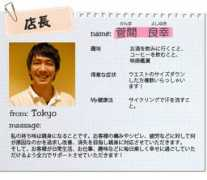 店長
かんま よしゆき
name: 菅間 良幸
趣味 お酒を飲みに行くこと、
コーヒーを飲むこと、
映画鑑賞
得意な症状 ウエストのサイズダウン
した方複数いらっしゃい
ます!
My健康法 サイクリングで汗を流すこ
と。
from: Tokyo
massage:
私の持ち味は親身になることです。お客様の痛みやシビレ、疲労などに対して何
が原因なのかを追求し改善、消失を目指し親身に対応させていただきます。
そして、お客様が日常生活、お仕事、趣味などに毎日楽しく幸せに過ごしていた
だけるよう全力でサポートさせていただきます!